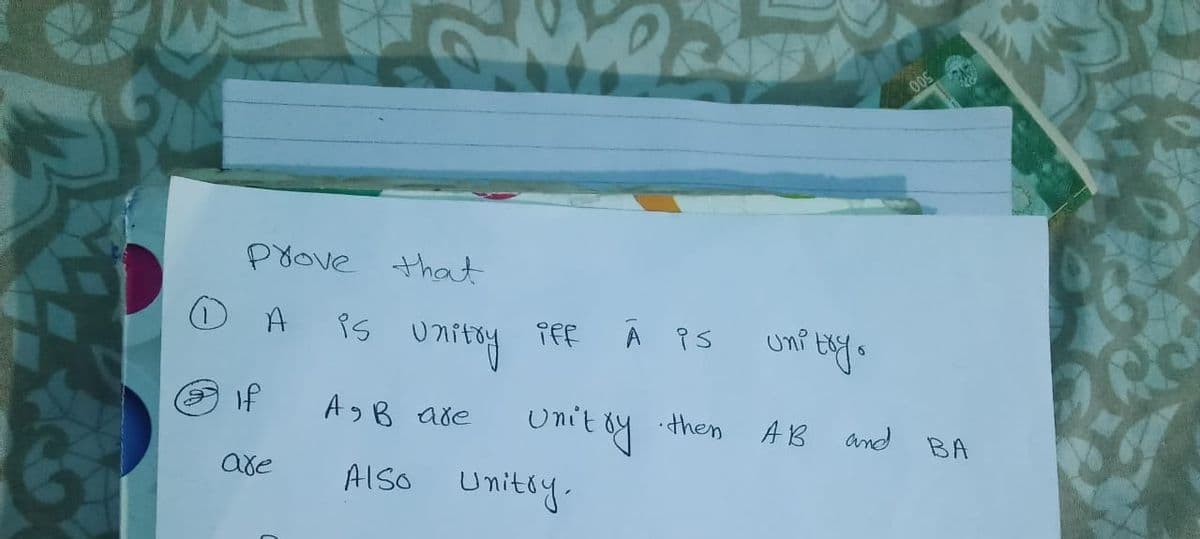 500
Prove that
① A is unitry iff Ā is unitry.
② If A, B are unitry then AB and BA
are Also Unitry.